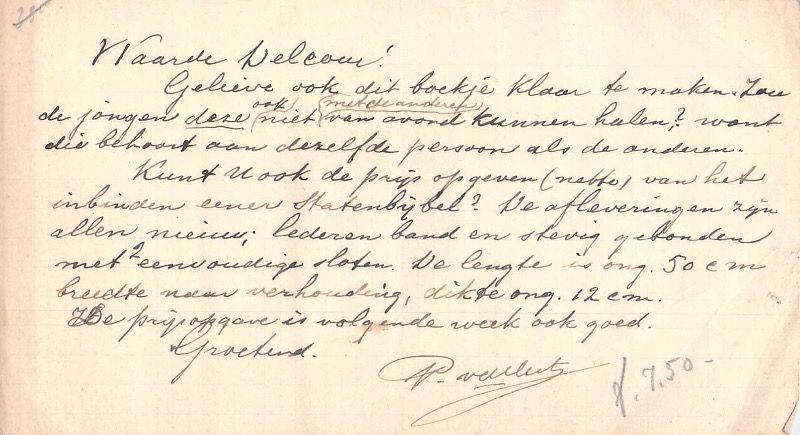 Waarde Delcour!
Gelieve ook dit boekje klaar te maken. Zou
de jongen deze ook niet (met de anderen) van avond kunnen halen,? want
die behoort aan dezelfde persoon als de anderen.
Kunt U ook de prijs opgeven (netto) van het
inbinden eener Statenbijbel? De afleveringen zijn
allen nieuw; lederen band en stevig gebonden
met 2 eenvoudige sloten. De lengte is ong. 50 cm
breedte naar verhouding, dikte ong. 12 cm.
De prijsopgave is volgende week ook goed.
Groetend.
P.
f. 7.50-